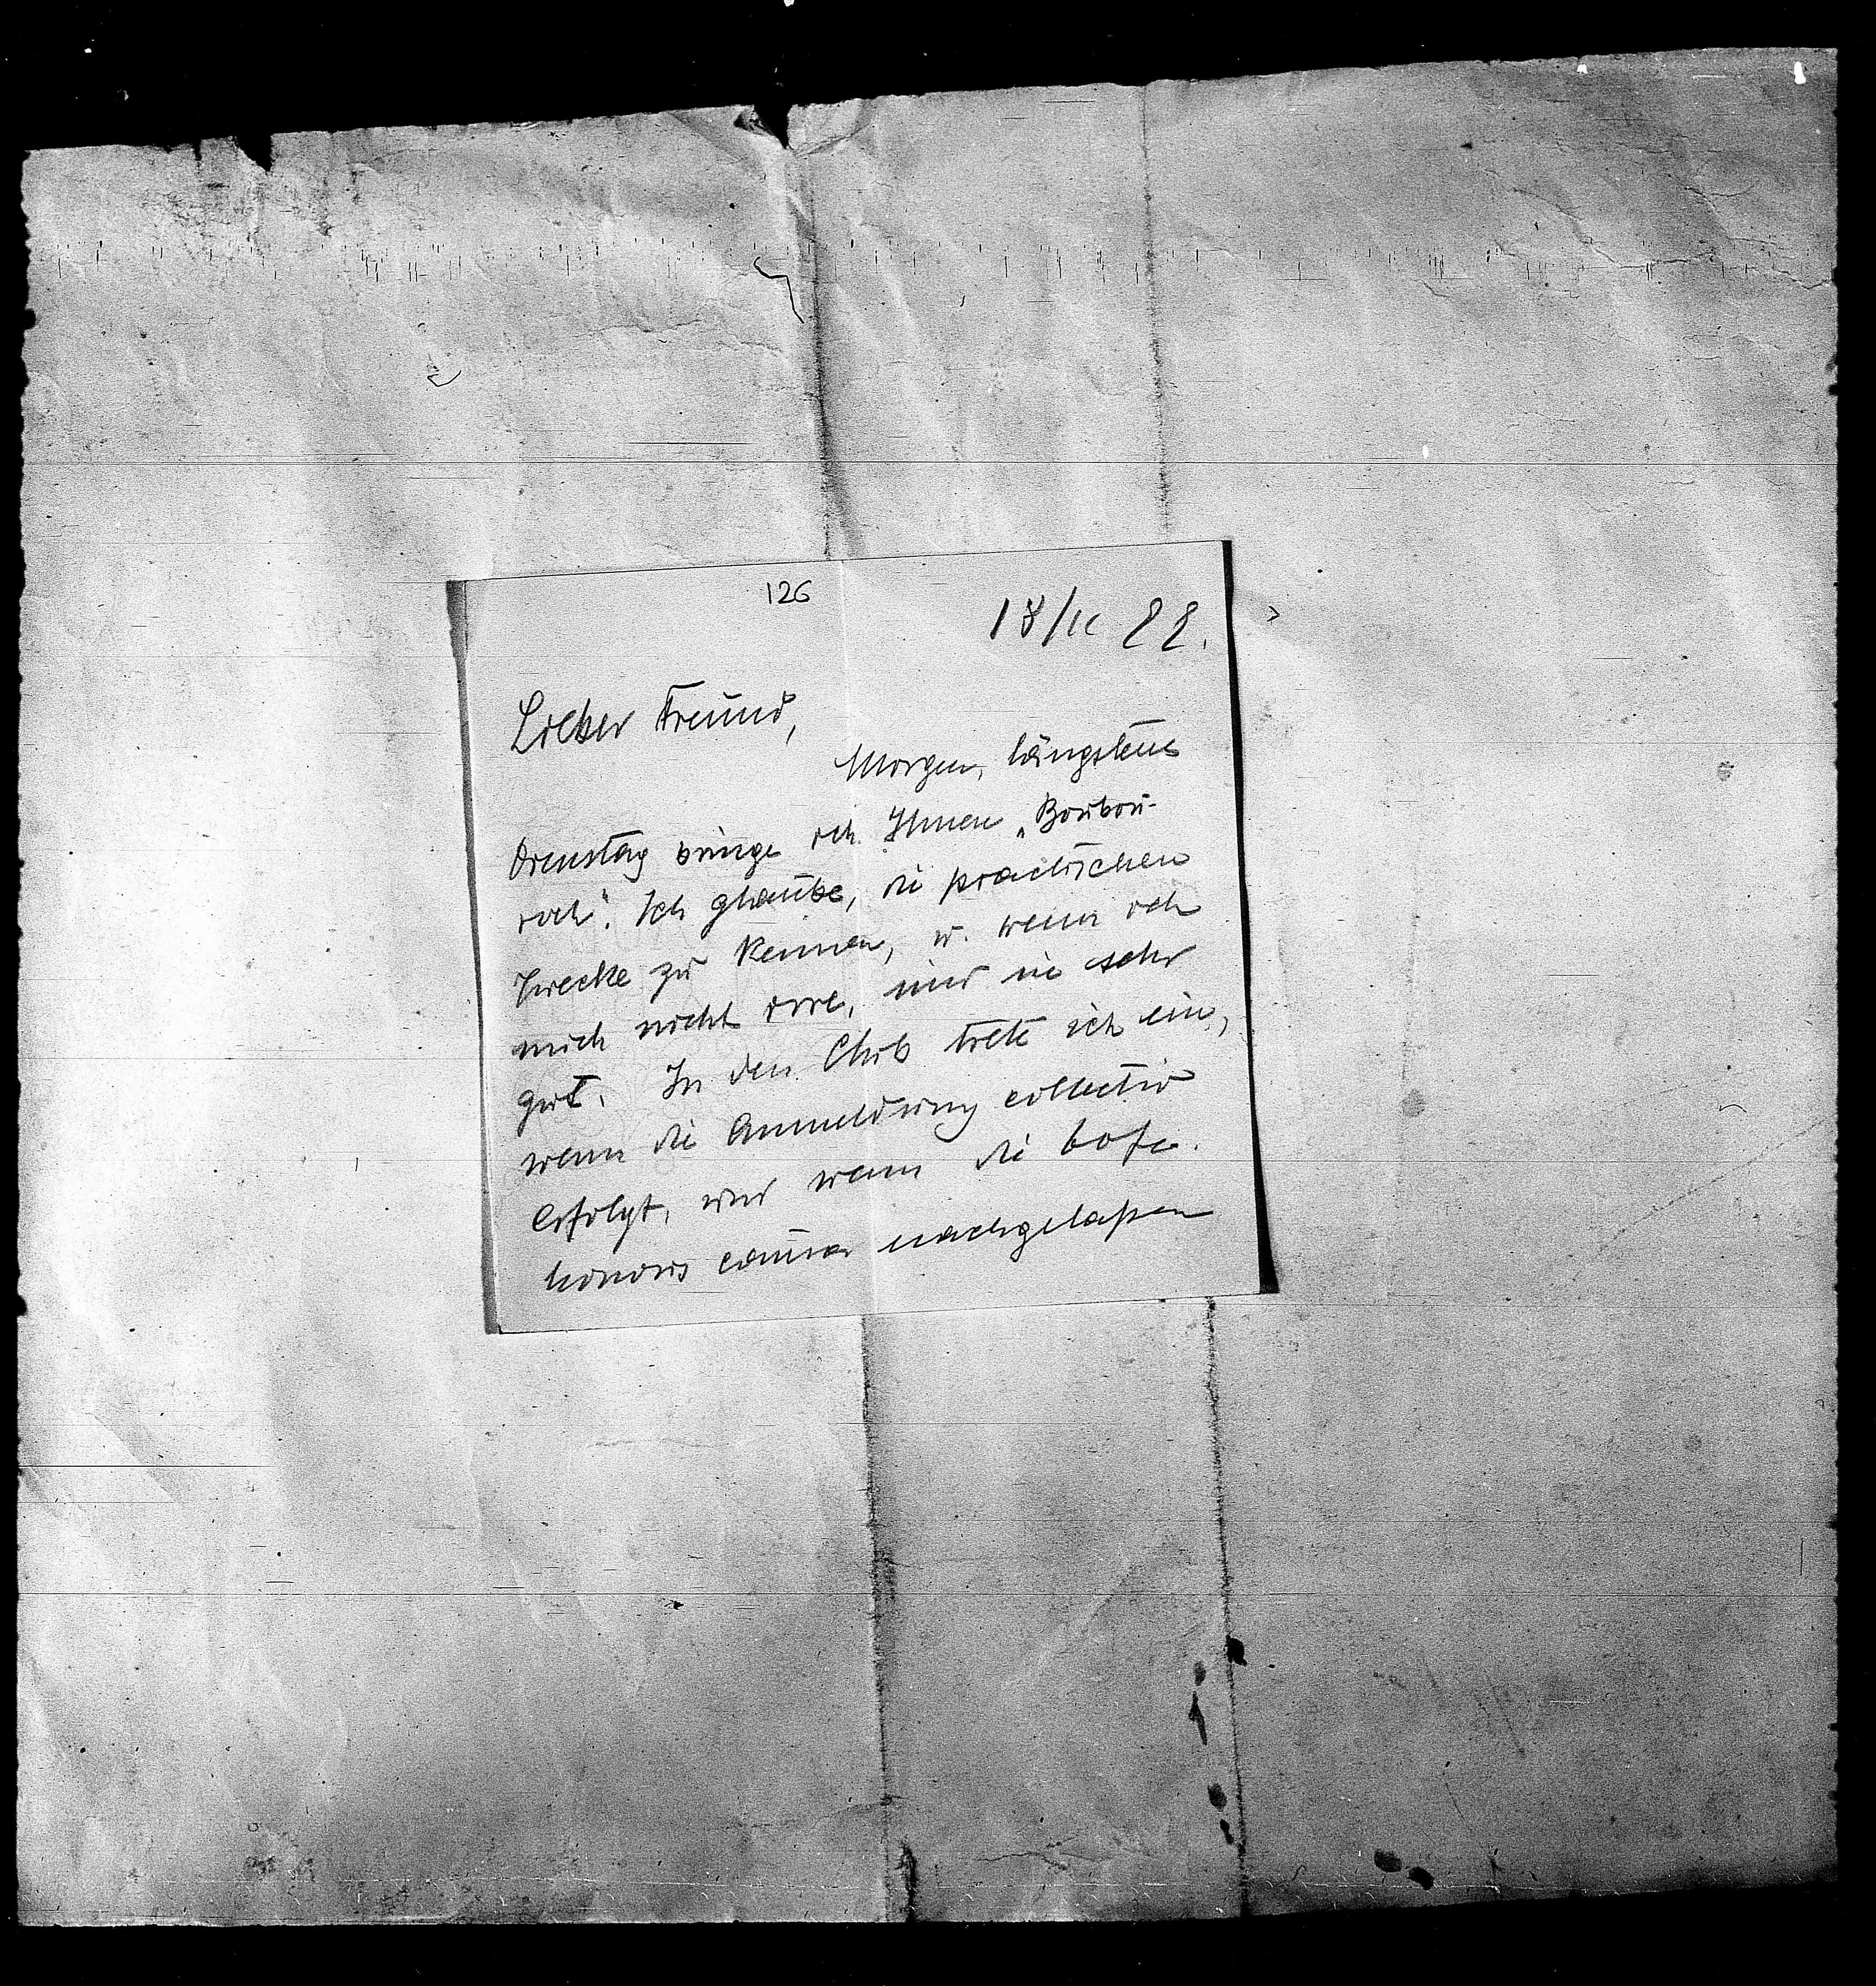 126
18/11 88.
Lieber Freund,
Morgen, längstens
Dienstag bringe ich Ihnen „Bourbou-
roch“. Ich glaube, die practischen
Zwecke zu kennen, u. wenn ich
mich nicht irre, sind sie sehr
gut. In den Club trete ich ein,
wenn die Anmeldung collectiv
erfolgt, und wenn die
honoris causa nachgelaßen